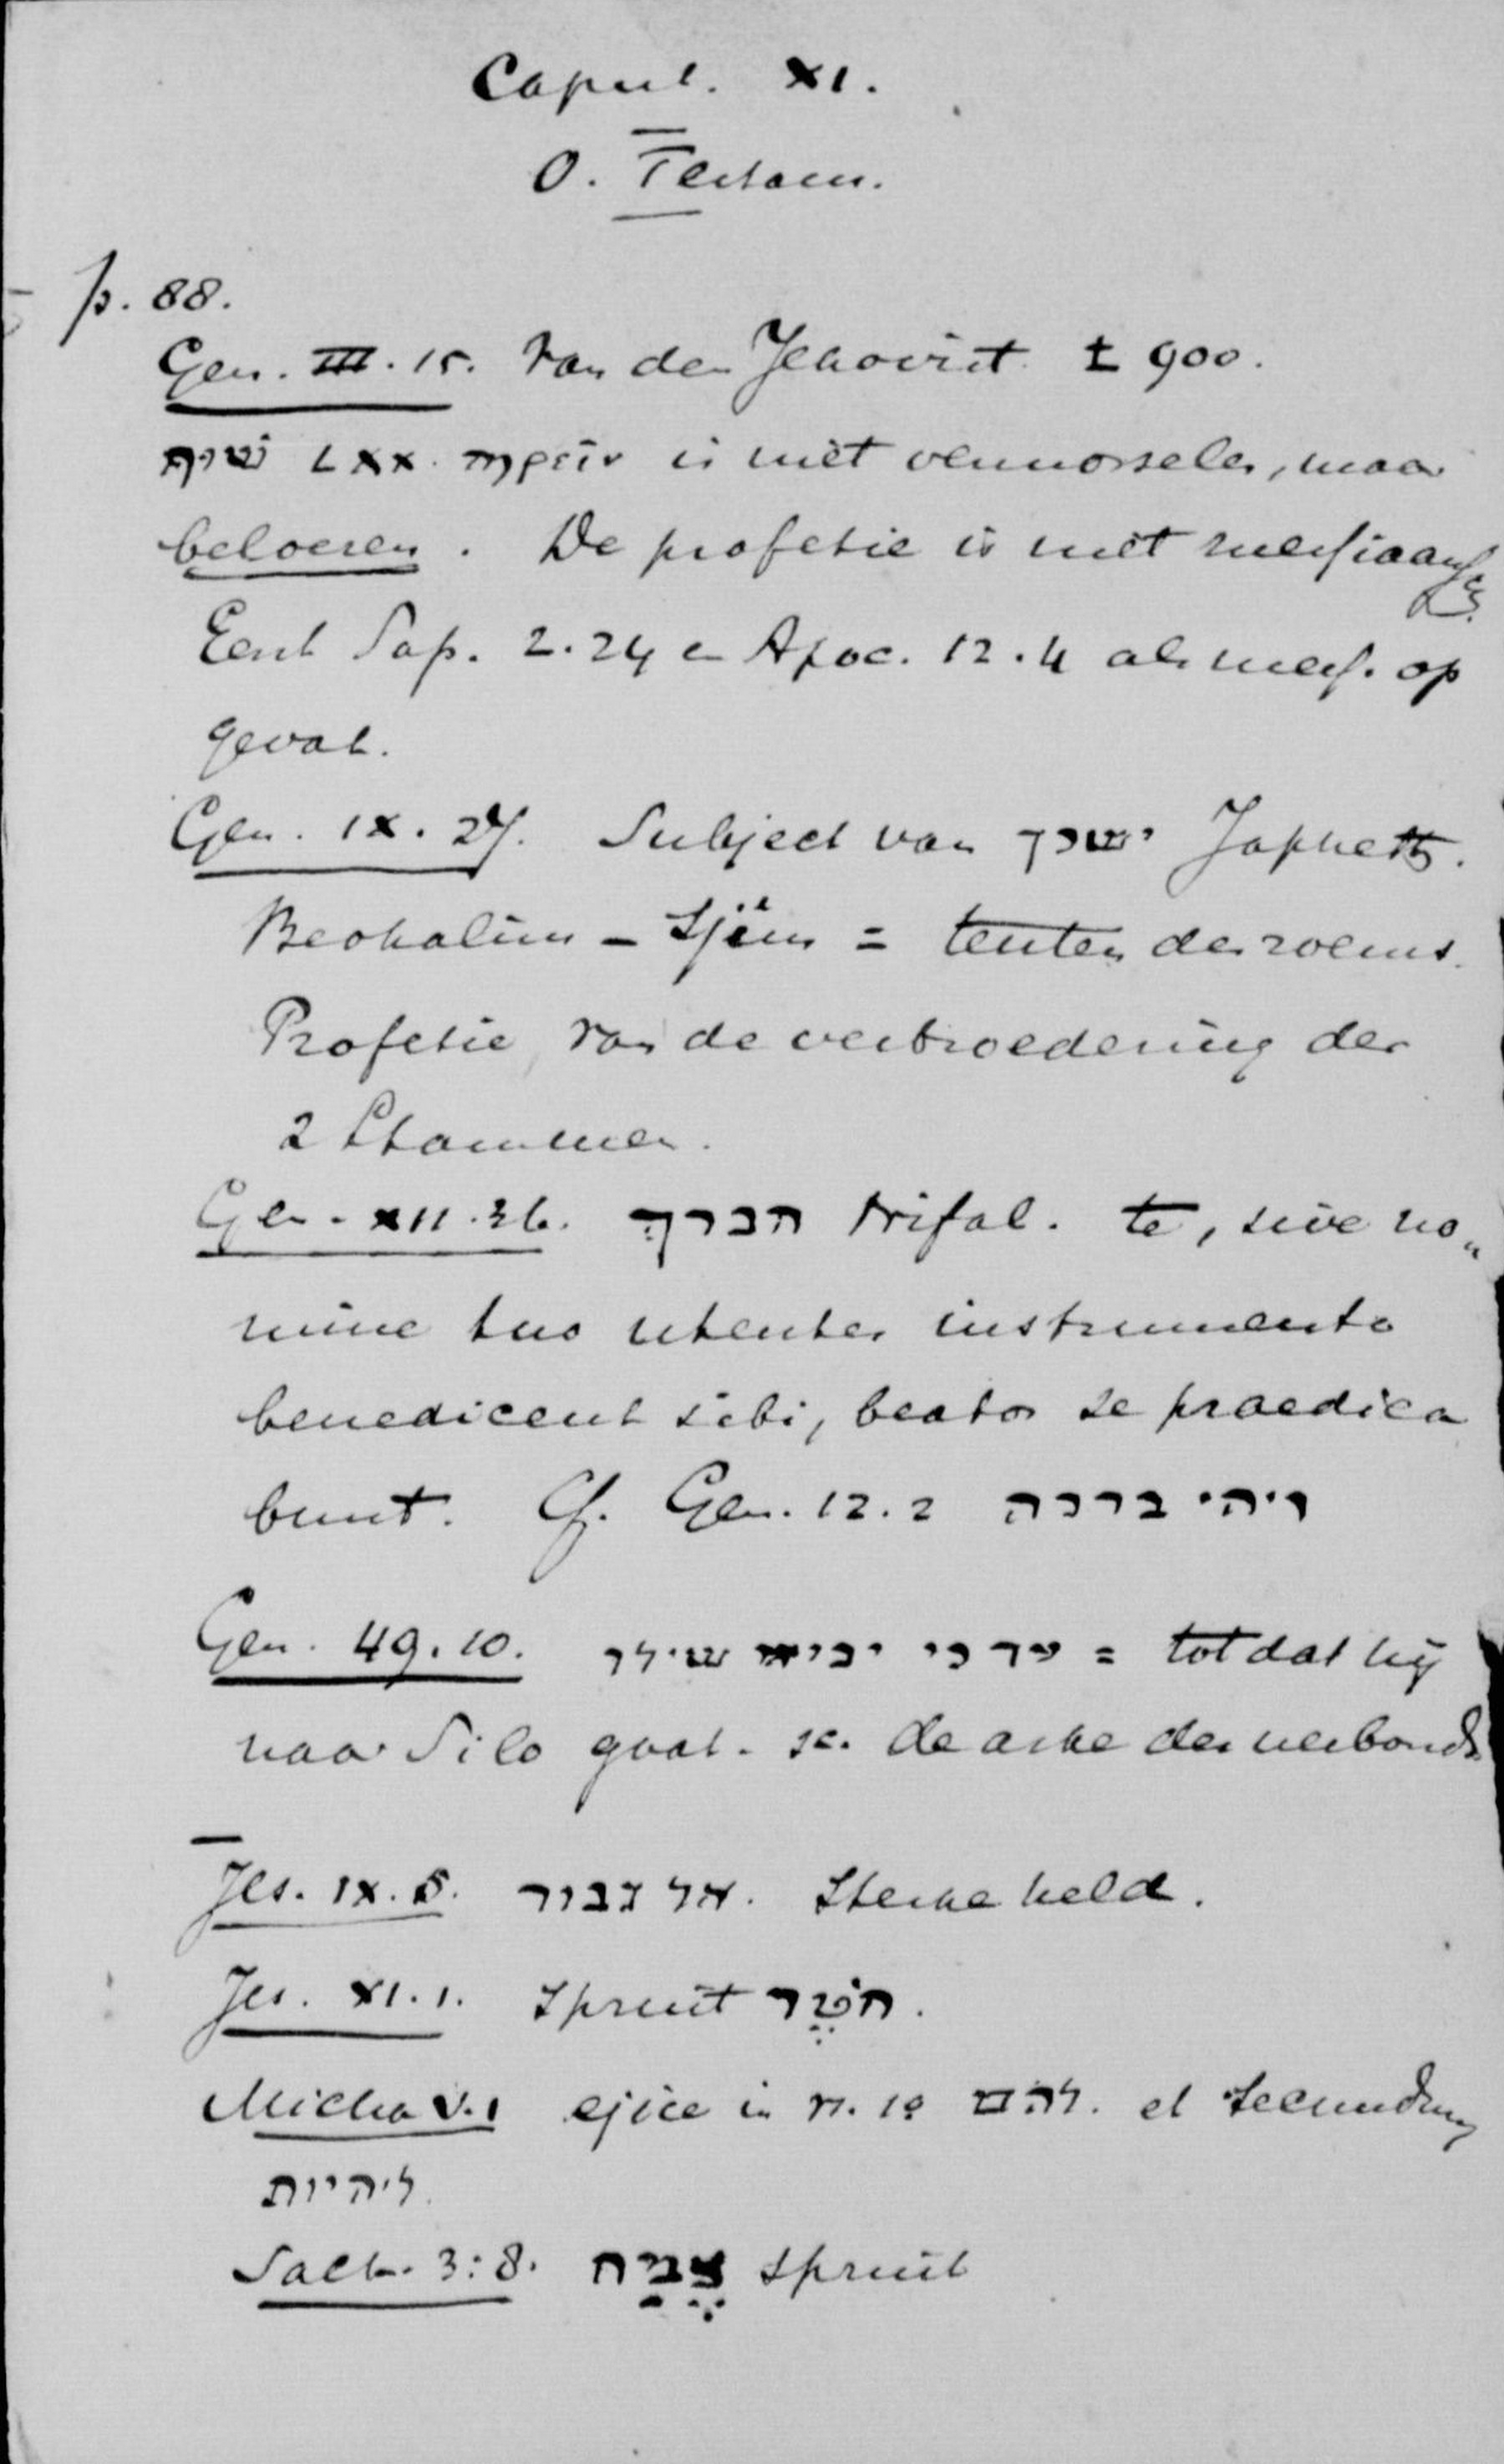 Caput. XI.
O. Testam.
p. 88.
Gen. III. 15. Van den Jehovist ± 900.
שׁוּף LXX. τηρεῖν is niet vermorselen, maar
beloeren. De profetie is niet messiaansch
Eerst Sap. 2.24 en Apoc. 12.4 als mess. op
gevat.
Gen. IX. 27. Subject van ישכן Japheth.
Beohalim - Sjêm = tenten des roems.
Profetie van de verbroedering der
2 Stammen.
Gen. XII. 3b. הברך Nifal. te, sive no„
mine tuo utentes instrumento
benedicent sibi, beatos se praedica
bunt. Cf. Gen. 12.2 ויהי ברכה
Gen. 49.10. עד כי יביא שילו = tot dat hij
naar Silo gaat. sc. de arke des verbonds
Jes. IX. 5. אל גבור. Sterke held.
Jes. XI. 1. Spruit חֹטֶר.
Micha V. 1 ejice in vs. 1º להם. et secundum
ליהיות.
Sach. 3:8. צֶמַח spruit